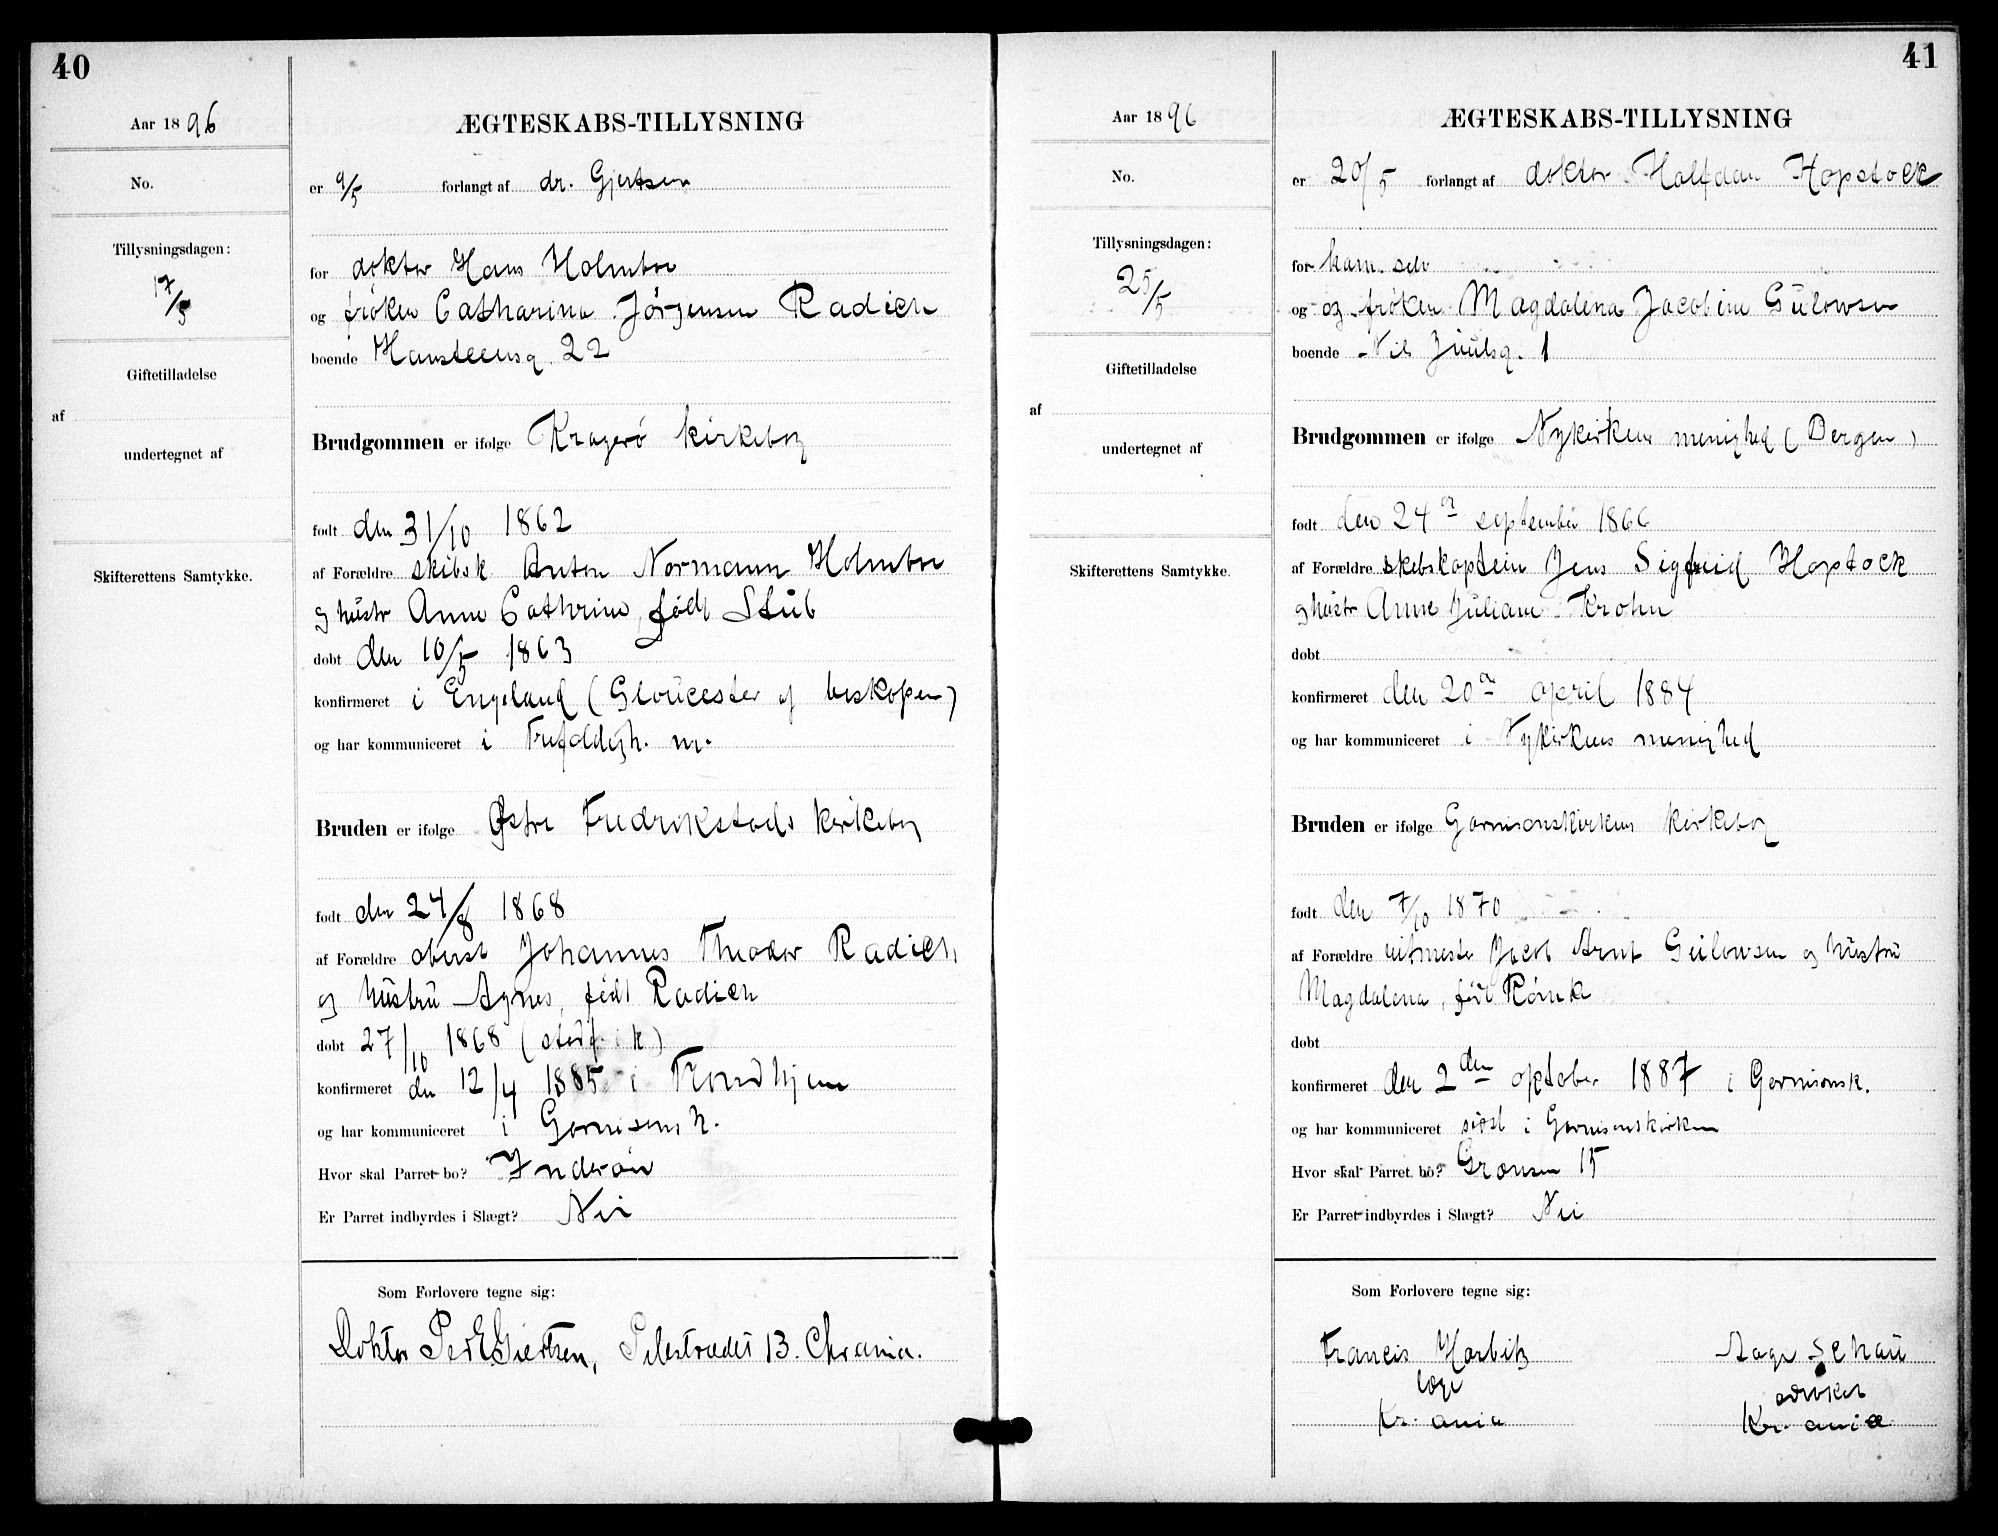 40
Aar 1896
No.
Tillysningsdagen:
17/5
Giftetilladelse
af
undertegnet af
Skifterettens Samtykke.
ÆGTESKABS-TILLYSNING
er 9/5 forlangt af dr. Gjertsen
for doktor Hans Holmboe
og frøken Catharina Jørgensen Radich
boende Hansteensg. 22
Brudgommen er ifølge Kragerø kirkebog
født den 31/10 1862
af Forældre skibsk Anton Normann Holmboe
og hustr Anne Cathrine, født Stub
døbt den 10/5 1863
konfirmeret i England (Gloucester af biskopen)
og har kommuniceret i Trefoldigh. m.
Bruden er ifølge Østre Fredrikstads kirkebog
født den 24/8 1868
af Forældre oberst Johannes Theodor Radich
og hustru Agnes, født Radich
døbt 27/10 1868
konfirmeret den 12/4 1885 i Trondhjem
og har kommuniceret i Garnisons k.
Hvor skal Parret bo? Inderøen
Er Parret indbyrdes i Slægt? Nei
Som Forlovere tegne sig:
Doktor Per E Giertsen, Pilestrædet 13. Chrania.
41
Aar 1896
No.
Tillysningsdagen:
25/5
Giftetilladelse
af
undertegnet af
Skifterettens Samtykke.
ÆGTESKABS-TILLYSNING
er 20/5 forlangt af doktor Halfdan Hopstock
for ham selv
og og frøken Magdalena Jacobine Gulowsen
boende Nils Juulsg. 1
Brudgommen er ifølge Nykirkens menighed (Bergen)
født den 24de september 1866
af Forældre skibskaptein Jens Sigfrid Hopstock
og hustr Anne Juliane Krohn
døbt
konfirmeret den 20de april 1884
og har kommuniceret i Nykirkens menighed
Bruden er ifølge Garnisonskirkens kirkebog
født den 7/10 1870
af Forældre ritmester Jacob Arnt Gulowsen og hustru
Magdalena, født
døbt
konfirmeret den 2den oktober 1887 i Garnisonsk.
og har kommuniceret sidst i Garnisonskirken
Hvor skal Parret bo? Grænsen 15
Er Parret indbyrdes i Slægt? Nei
Som Forlovere tegne sig:
Francis Harbitz Aage Schou
læge advokat
Kr.ania Kr.ania